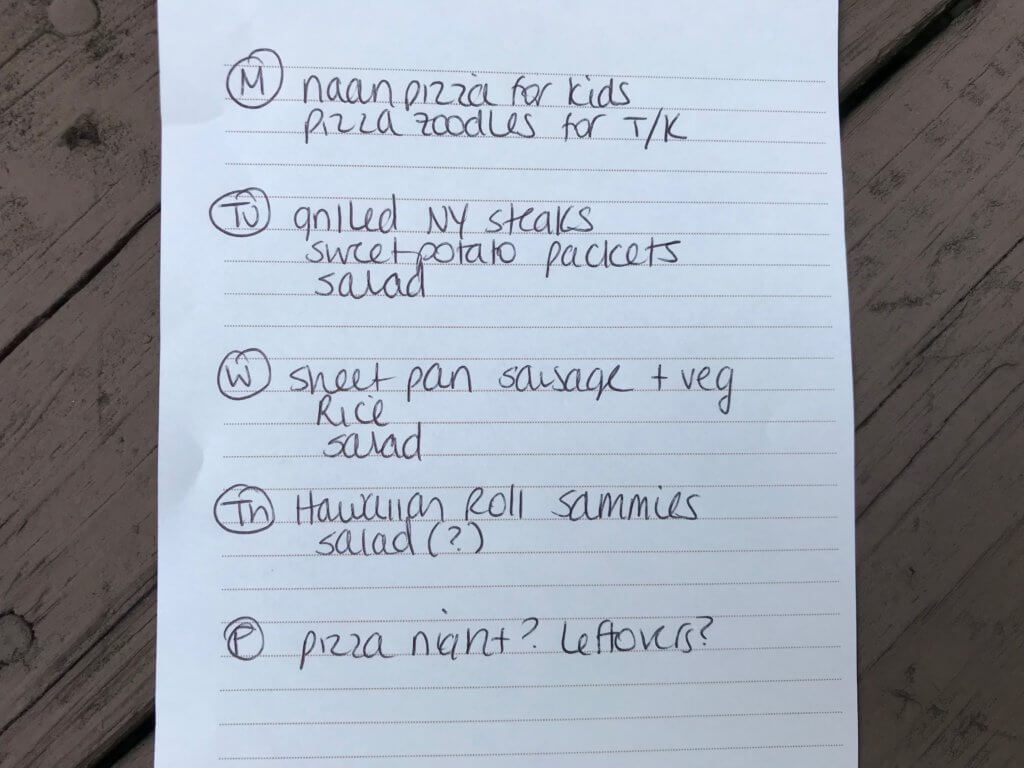 M naan pizza for kids
pizza zoodles for T/K
TU grilled NY steaks
sweet potato packets
salad
W sheet pan sausage + veg
Rice
salad
Th Hawaiian Roll sammies
salad (?)
F pizza night? leftovers?